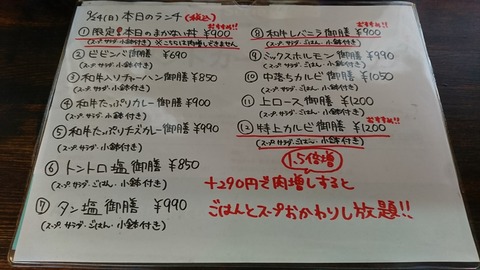 9/24(日)本日のランチ(税込)
おすすめ!!
① 限定! 本日のまかない丼 ¥900
(スープ・サラダ・小鉢付き) ※こちらは肉増しできません
② ビビンバ御膳 ¥690
(スープ・サラダ・小鉢付き)
③ 和牛ハラチャーハン御膳 ¥850
(スープ・サラダ・小鉢付き)
④ 和牛たっぷりカレー御膳 ¥900
(スープ・サラダ・小鉢付き)
⑤ 和牛たっぷりチーズカレー御膳 ¥990
(スープ・サラダ・小鉢付き)
⑥ トントロ塩御膳 ¥850
(スープ・サラダ・ごはん・小鉢付き)
⑦ タン塩御膳 ¥990
(スープ・サラダ・ごはん・小鉢付き)
おすすめ!!
⑧ 和牛レバニラ御膳 ¥900
(スープ・サラダ・ごはん・小鉢付き)
⑨ ミックスホルモン御膳 ¥990
(スープ・サラダ・ごはん・小鉢付き)
⑩ 中落ちカルビ御膳 ¥1050
(スープ・サラダ・ごはん・小鉢付き)
⑪ 上ロース御膳 ¥1200
(スープ・サラダ・ごはん・小鉢付き)
おすすめ!!
⑫ 特上カルビ御膳 ¥1200
(スープ・サラダ・ごはん・小鉢付き)
1.5倍増
+290円で肉増しすると
ごはんとスープおかわりし放題!!